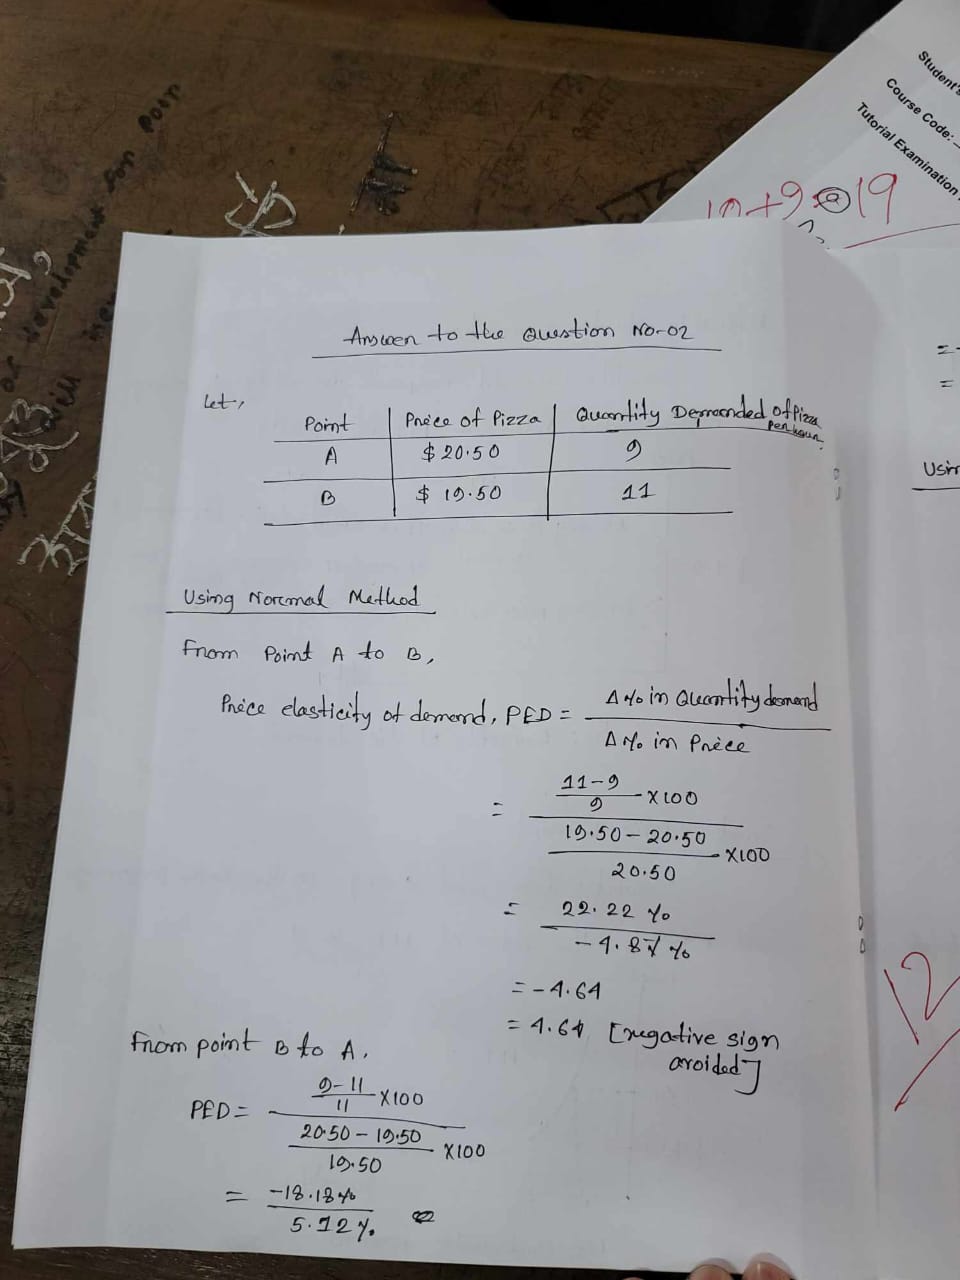 Student's
Course Code:
Tutorial Examination
10+9 = 19
Answer to the Question No-02
Let,
Point | Price of Pizza | Quantity Demanded of Pizza per hour
A | $ 20.50 | 9
B | $ 19.50 | 11
Using Normal Method
From Point A to B,
Price elasticity of demand, PED = Δ% in Quantity demand
Δ% in Price
= 11-9
9 ×100
19.50 - 20.50
20.50 ×100
= 22.22 %
- 4.87 %
= - 4.64
= 4.64 [negative sign
avoided]
From point B to A.
PED = 9-11
11 ×100
20.50 - 19.50
19.50 ×100
= -18.18%
5.12%
=
=
Usin
12
development
for
poor